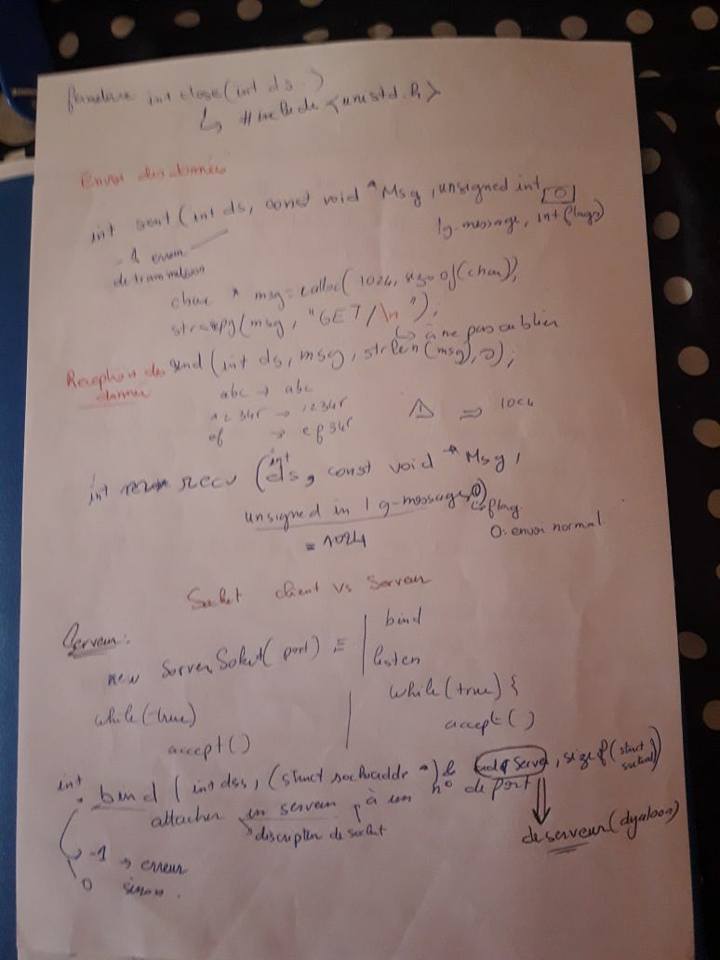 fermeture int close(int ds )
↳ #include <unistd.h>
Envoi des données
int sent(int ds, const void *Msg, unsigned int
lg-message, int flags)
0
-1 erreur
de transmission
char * msg = calloc(1024, size of(char));
strcpy(msg, "GET/\n");
↳ à ne pas oublier
send(int ds, msg, strlen(msg), 0);
Reception des
données
abc → abc
12345 → 12345
ef → ef345
⚠ ⇒ 1024
int recv (int ds, const void *Msg,
unsigned in lg-messages, 0)
↳ flag
= 1024
0: envoi normal
Socket client vs Serveur
Serveur:
new ServerSocket(port) ≡ | bind
listen
while(true) | while(true) {
accept() accept()
int bind(int dss, (struct sockaddr *)& Server, size of(struct
attacher un serveur à un n° de port
↳ discripteur de socket
de serveur (dyalou)
→ -1 → erreur
0 sinon.